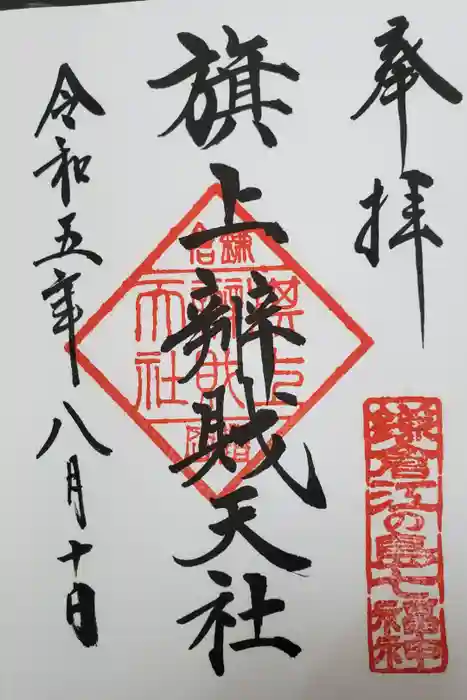 奉拝
鎌倉江の島七福神
旗上辨財天社
令和五年八月十日